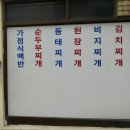 김치찌개
비지찌개
된장찌개
동태찌개
순두부찌개
가정식백반